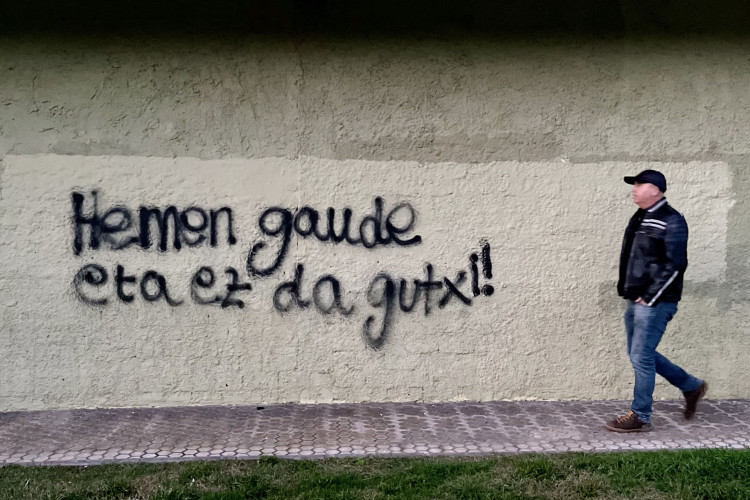 Hemen gaude
eta ez da gutxi!!